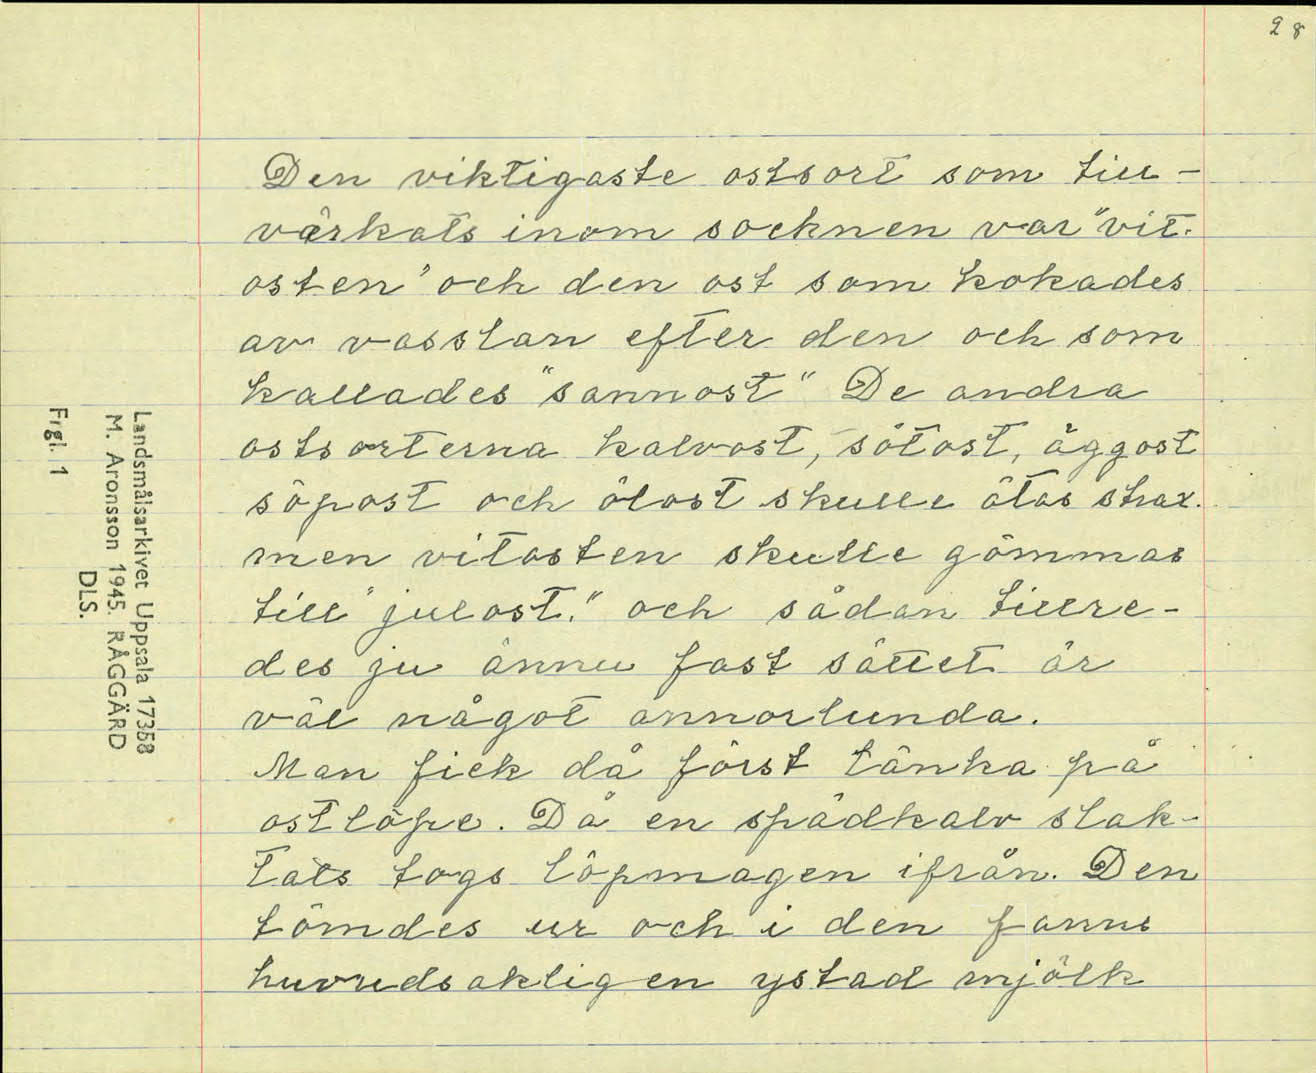 28
Den viktigaste ostsort som till-
värkats inom socknen var "vit-
osten" och den ost som kokades
av vasslan efter den och som
kallades "sannost" De andra
ostsorterna kalvost, sötost, äggost
söpost och ölost skulle ätas strax.
men vitosten skulle gömmas
till "julost." och sådan tillre-
des ju ännu fast sättet är
väl något annorlunda.
Man fick då först tänka på
ostlöpe. Då en spädkalv slak-
tats togs löpmagen ifrån. Den
tömdes ur och i den fanns
huvudsakligen ystad mjölk
Landsmålsarkivet Uppsala 17358
M. Aronsson 1945. RÅGGÄRD
DLS.
Frgl. 1